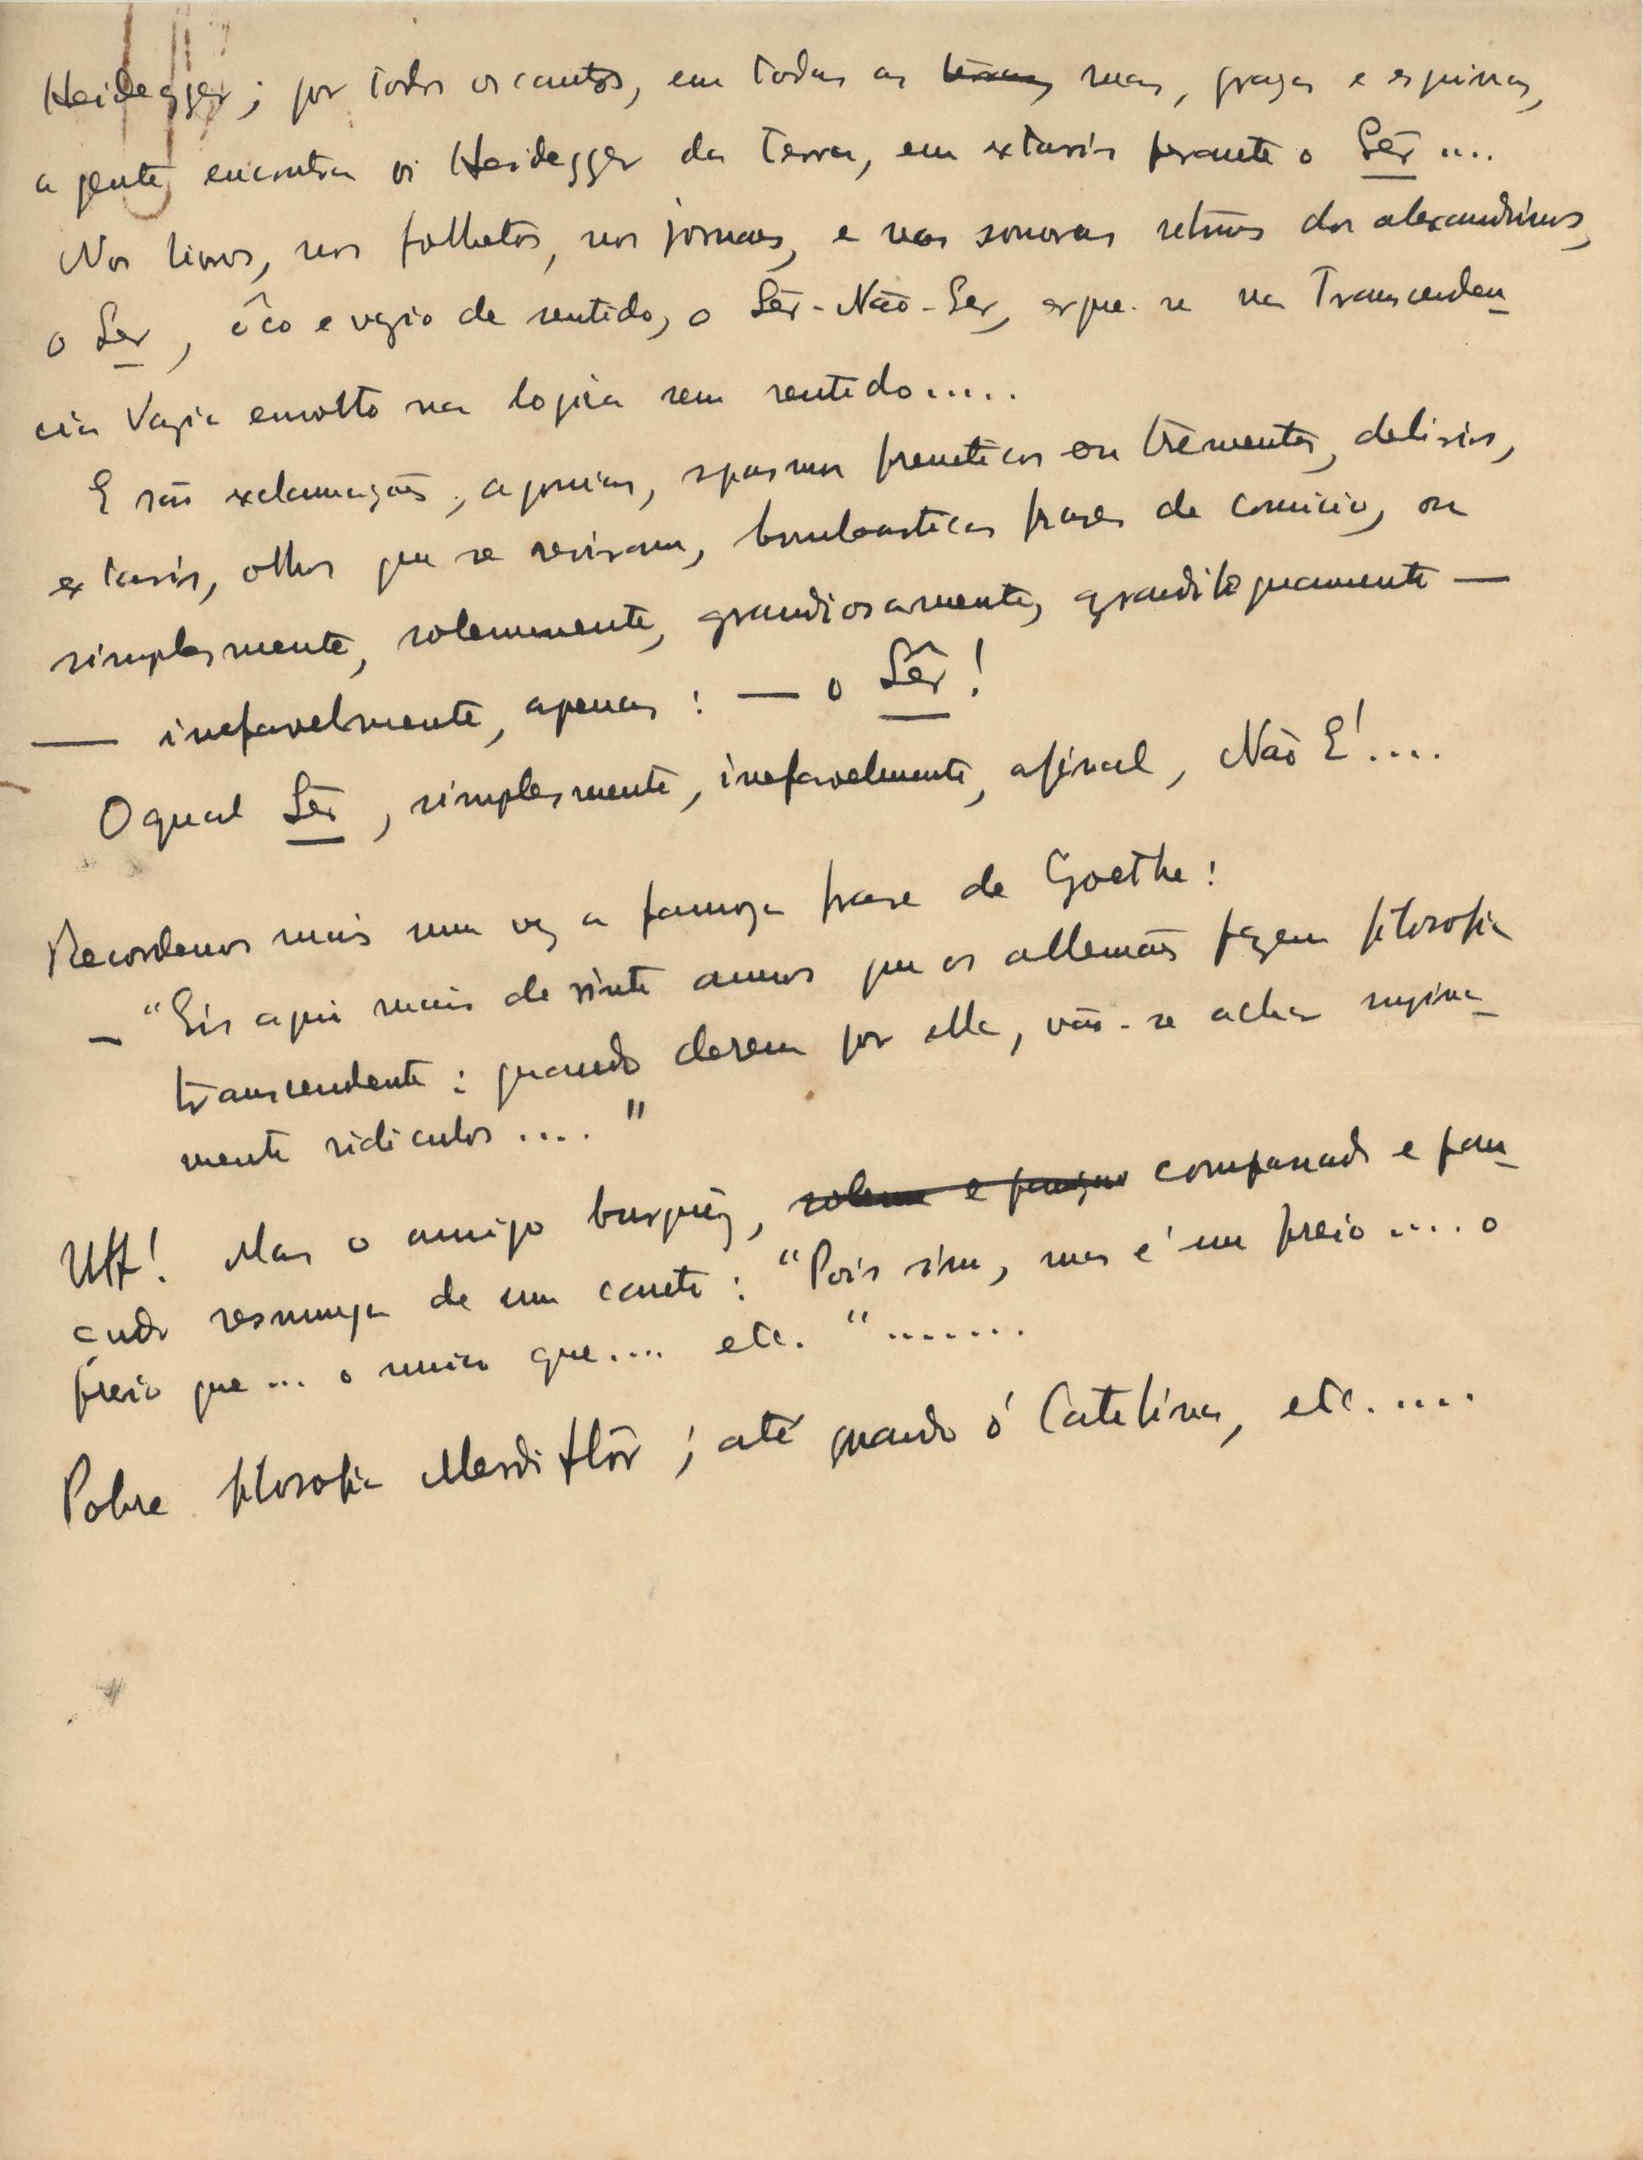 Heidegger; por todos os cantos, em todas as ruas, praças e esquinas,
a gente encontra os Heidegger da Terra, em extasis perante o Sêr....
Nos livros, nos folhetos, nos jornaes, e nas sonoras dos alexandrinos,
o Ser, ôco e vazio de sentido, o Sêr-Não-Ser, ergue-se na Transcenden-
cia Vazia envolto na logica sem sentido.....
E são exclamações, agonias, spasmos freneticos ou trementes, delirios,
extasis, olhos que se reviram, bombasticas frases de comicio, ou
simplesmente, solemnemente, grandiosamente, grandiloquamente —
— inefavelmente, apenas: — o Sêr!
O qual Sêr, simplesmente, inefavelmente, afinal, Não E'....
Recordemos mais uma vez a famoza frase de Goethe:
— "Eis aqui mais de vinte annos que os allemães fazem filosofia
transcendente: quando derem por ella, vão-se achar supina-
mente ridiculos...."
Uff! Mas o amigo burguêz, solemne e compassado e pan-
çudo resmunga de um canto: "Pois sim, mas é um freio.... o
freio que... o unico que.... etc." .......
Pobre filosofia Merdiflôr; até quando ó Catilina, etc.....